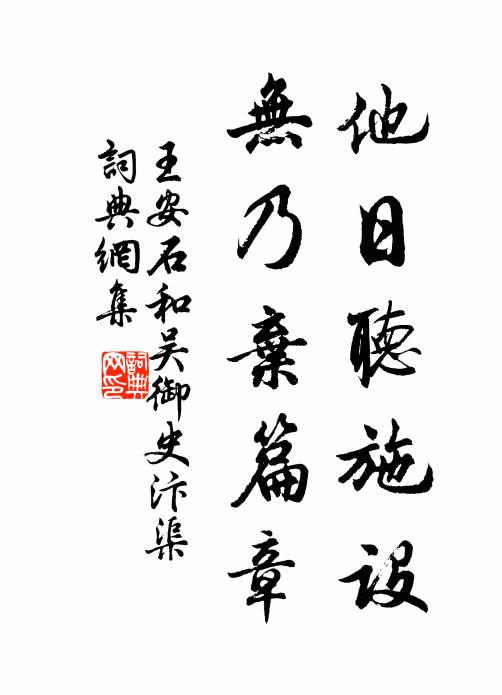 他日聽施設
無乃棄篇章
王安石和吴御史汴渠
詞典網集
詞典網印